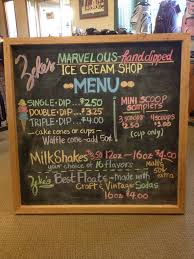 Zeke's MARVELOUS hand dipped
ICE CREAM SHOP
MENU
SINGLE·DIP... $2.50
DOUBLE·DIP... $3.25
TRIPLE·DIP.... $4.00
- cake cones or cups
Waffle cone - add 50¢
MINI SCOOP
SAMPLERS
(cup only)
MilkShakes 12oz 16oz $4.00
your choice of 16 flavors
Zeke's Best Floats - made with
Craft & Vintage Sodas
16oz $4.00